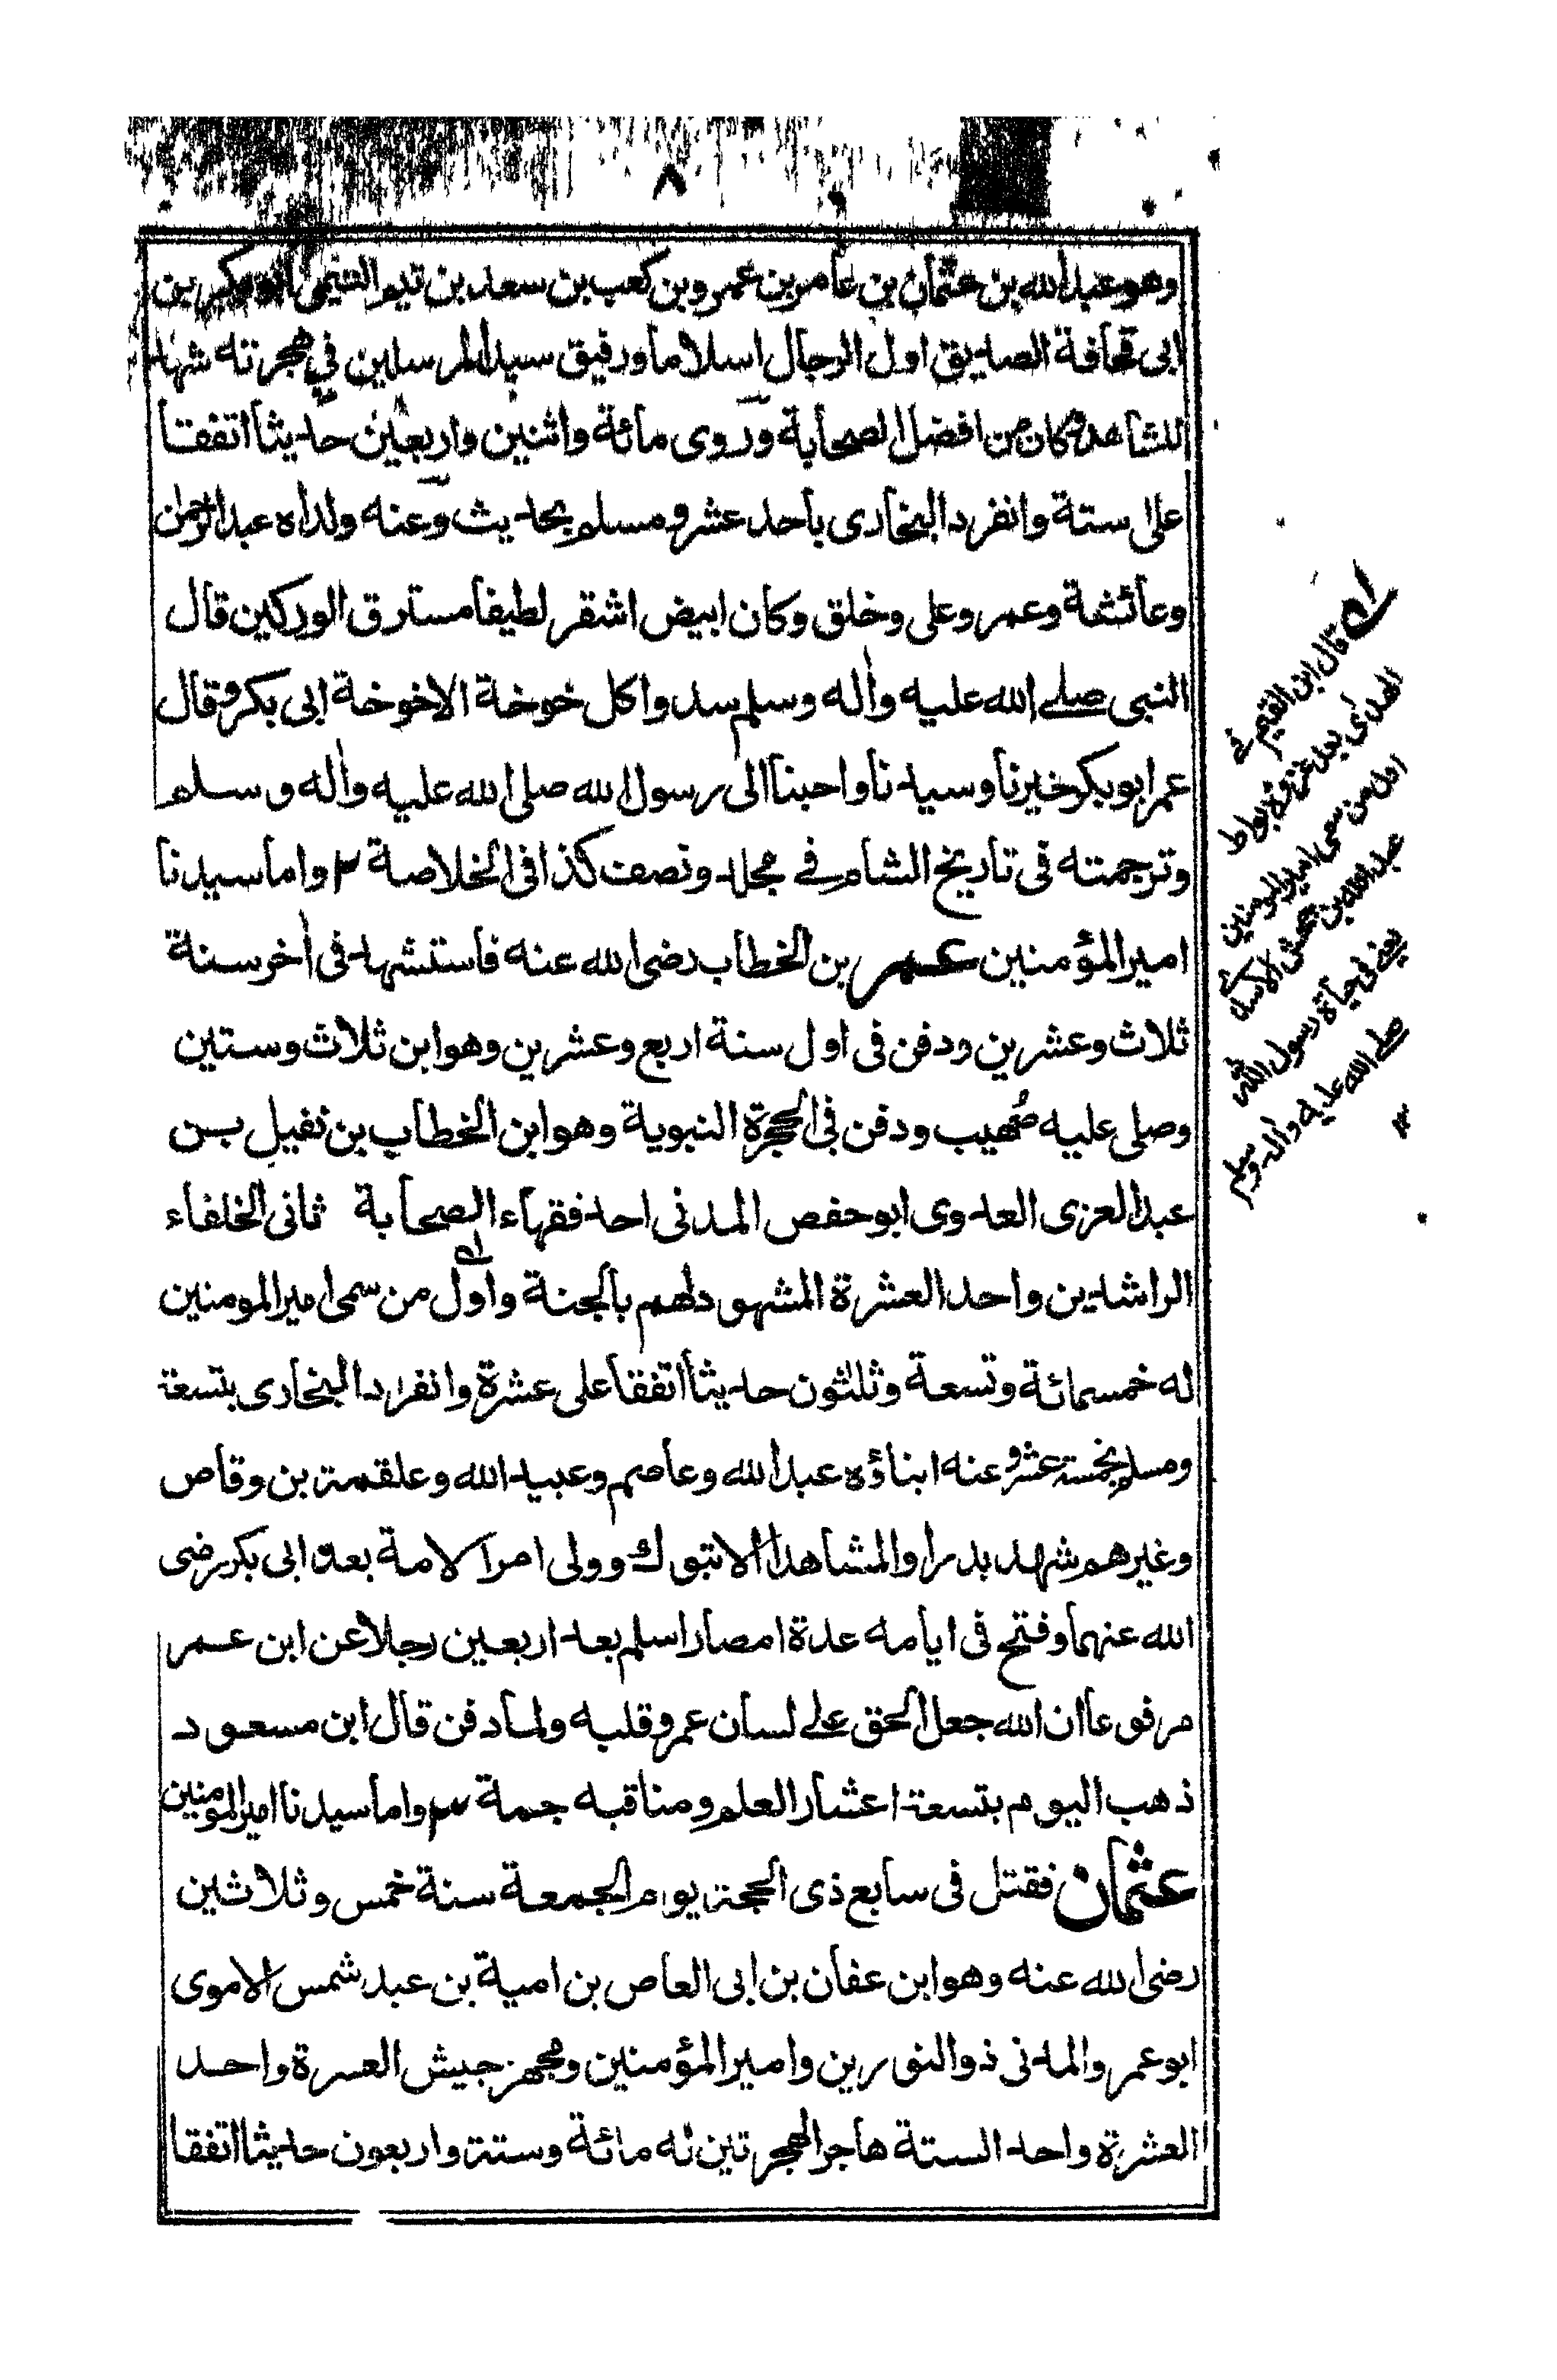 ٨
وهو عبد الله بن عثمان بن عامر بن عمرو بن كعب بن سعد بن تيم التيمي ابو بكر بن
ابى قحافة الصديق اول الرجال اسلاما ورفيق سيد المرسلين في هجرته شهد
المشاهد وكان من افضل الصحابة وروى مائة واثنين واربعين حديثا اتفقا
على ستة وانفرد البخارى باحد عشر ومسلم بحديث وعنه ولداه عبد الرحمن
وعائشة وعمر وعلى وخلق وكان ابيض اشقر لطيفا مسترق الوركين قال
النبى صلے الله عليه واٰله وسلم سدوا كل خوخة الا خوخة ابى بكر وقال
عمر ابو بكر خيرنا وسيدنا واحبنا الى رسول الله صلى الله عليه واٰله وسلم
وترجمته فى تاريخ الشام فے مجلد ونصف كذا فى الخلاصة ٢ واما سيدنا
امير المؤمنين عمر بن الخطاب رضى الله عنه فاستشهد فى اٰخر سنة
ثلاث وعشرين ودفن فى اول سنة اربع وعشرين وهو ابن ثلاث وستين
وصلى عليه صُهيب ودفن فى الحجرة النبوية وهو ابن الخطاب بن نفيل بن
عبد العزى العدوى ابو حفص المدنى احد فقهاء الصحابة ثانى الخلفاء
الراشدين واحد العشرة المشهود لهم بالجنة واول من سمى امير المومنين
له خمسمائة وتسعة وثلثون حديثا اتفقا على عشرة وانفرد البخارى بتسعة
ومسلم بخمسة عشر وعنه ابناؤه عبد الله وعاصم وعبيد الله وعلقمة بن وقاص
وغيرهم شهد بدرا والمشاهد الا تبوك وولى امر الامة بعد ابى بكر رضى
الله عنهما وفتح فى ايامه عدة امصار اسلم بعد اربعين رجلا عن ابن عمر
مرفوعا ان الله جعل الحق علے لسان عمر وقلبه ولما دفن قال ابن مسعود
ذهب اليوم بتسعة اعشار العلم ومناقبه جمة ٣ واما سيدنا امير المومنين
عثمان فقتل فى سابع ذى الحجة يوم الجمعة سنة خمس وثلاثين
رضى الله عنه وهو ابن عفان بن ابى العاص بن امية بن عبد شمس الاموى
ابو عمر والمدنى ذو النورين وامير المؤمنين ومجهز جيش العسرة واحد
العشرة واحد الستة هاجر الهجرتين له مائة وستة واربعون حديثا اتفقا
قال ابن القيم فے
الهدى بعد غزوة بواط
اول من سمى امير المومنين
عبد الله بن جحش الاسدے
يعنے فى حياة رسول الله
صلے الله عليه واٰله وسلم